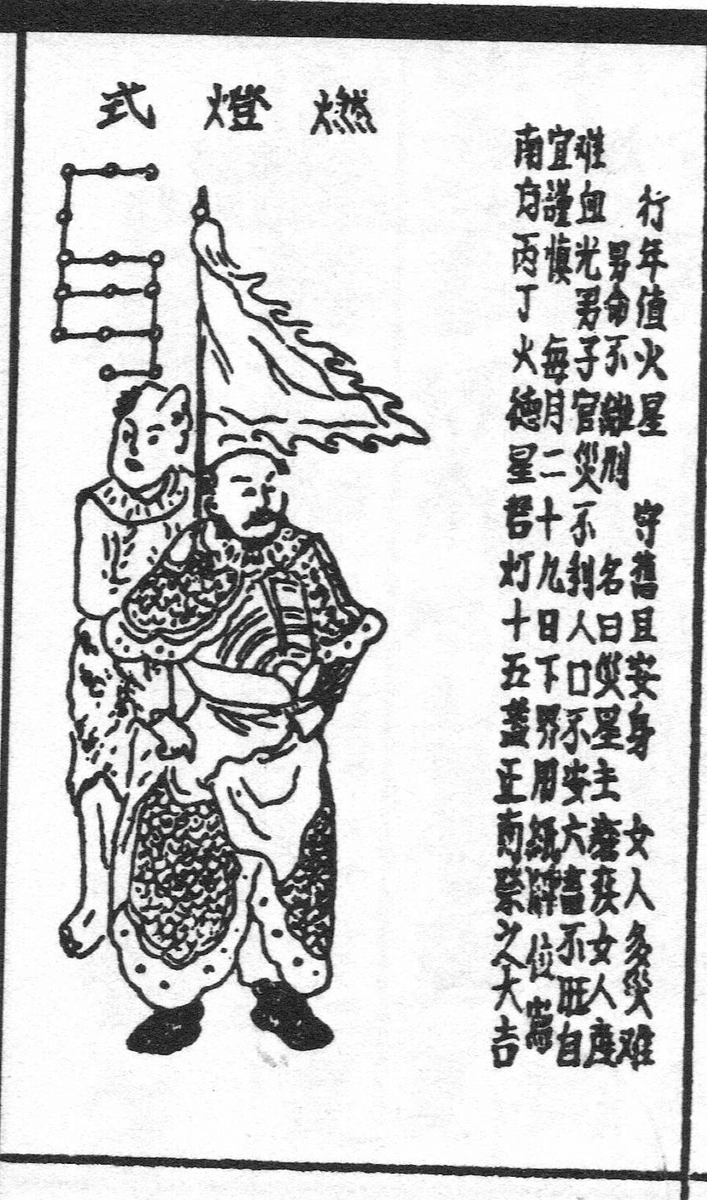 燃燈式
行年值火星 守舊且安身 女人多災难
男命不離刑 名曰災星主瘡疾女人產
难血光男子官災不利人口不安六畜不旺自
宜謹慎 每月二十九日下界用紙牌位寫
南方丙丁火德星君灯十五盞正南祭之大吉